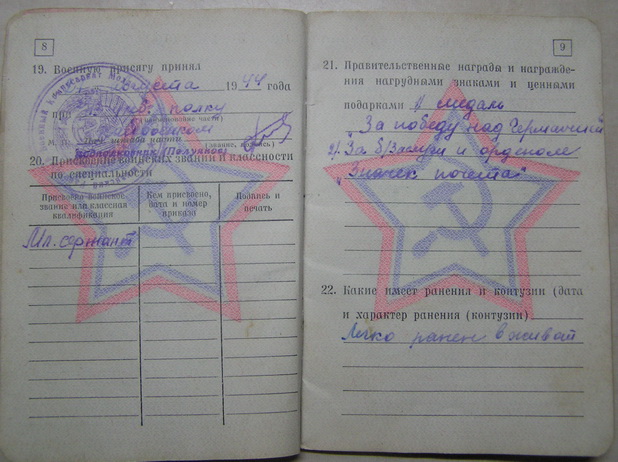 8
19. Военную присягу принял
августа 1944 года
при полку
(наименование части)
М. П. Нач. штаба части
(звание, подпись)
подполковник (Полуянов)
20. Присвоение воинских званий и классности
по специальности
Присвоено воинское
звание или классная
квалификация
Кем присвоено,
дата и номер
приказа
Подпись и
печать
Мл. сержант
9
21. Правительственные награды и награжде-
ния нагрудными знаками и ценными
подарками 1) медаль
"За победу над Германией
2) За б/Заслуги и орденом
"Значек почета"
22. Какие имеет ранения и контузии (дата
и характер ранения (контузии)
Легко ранен в живот